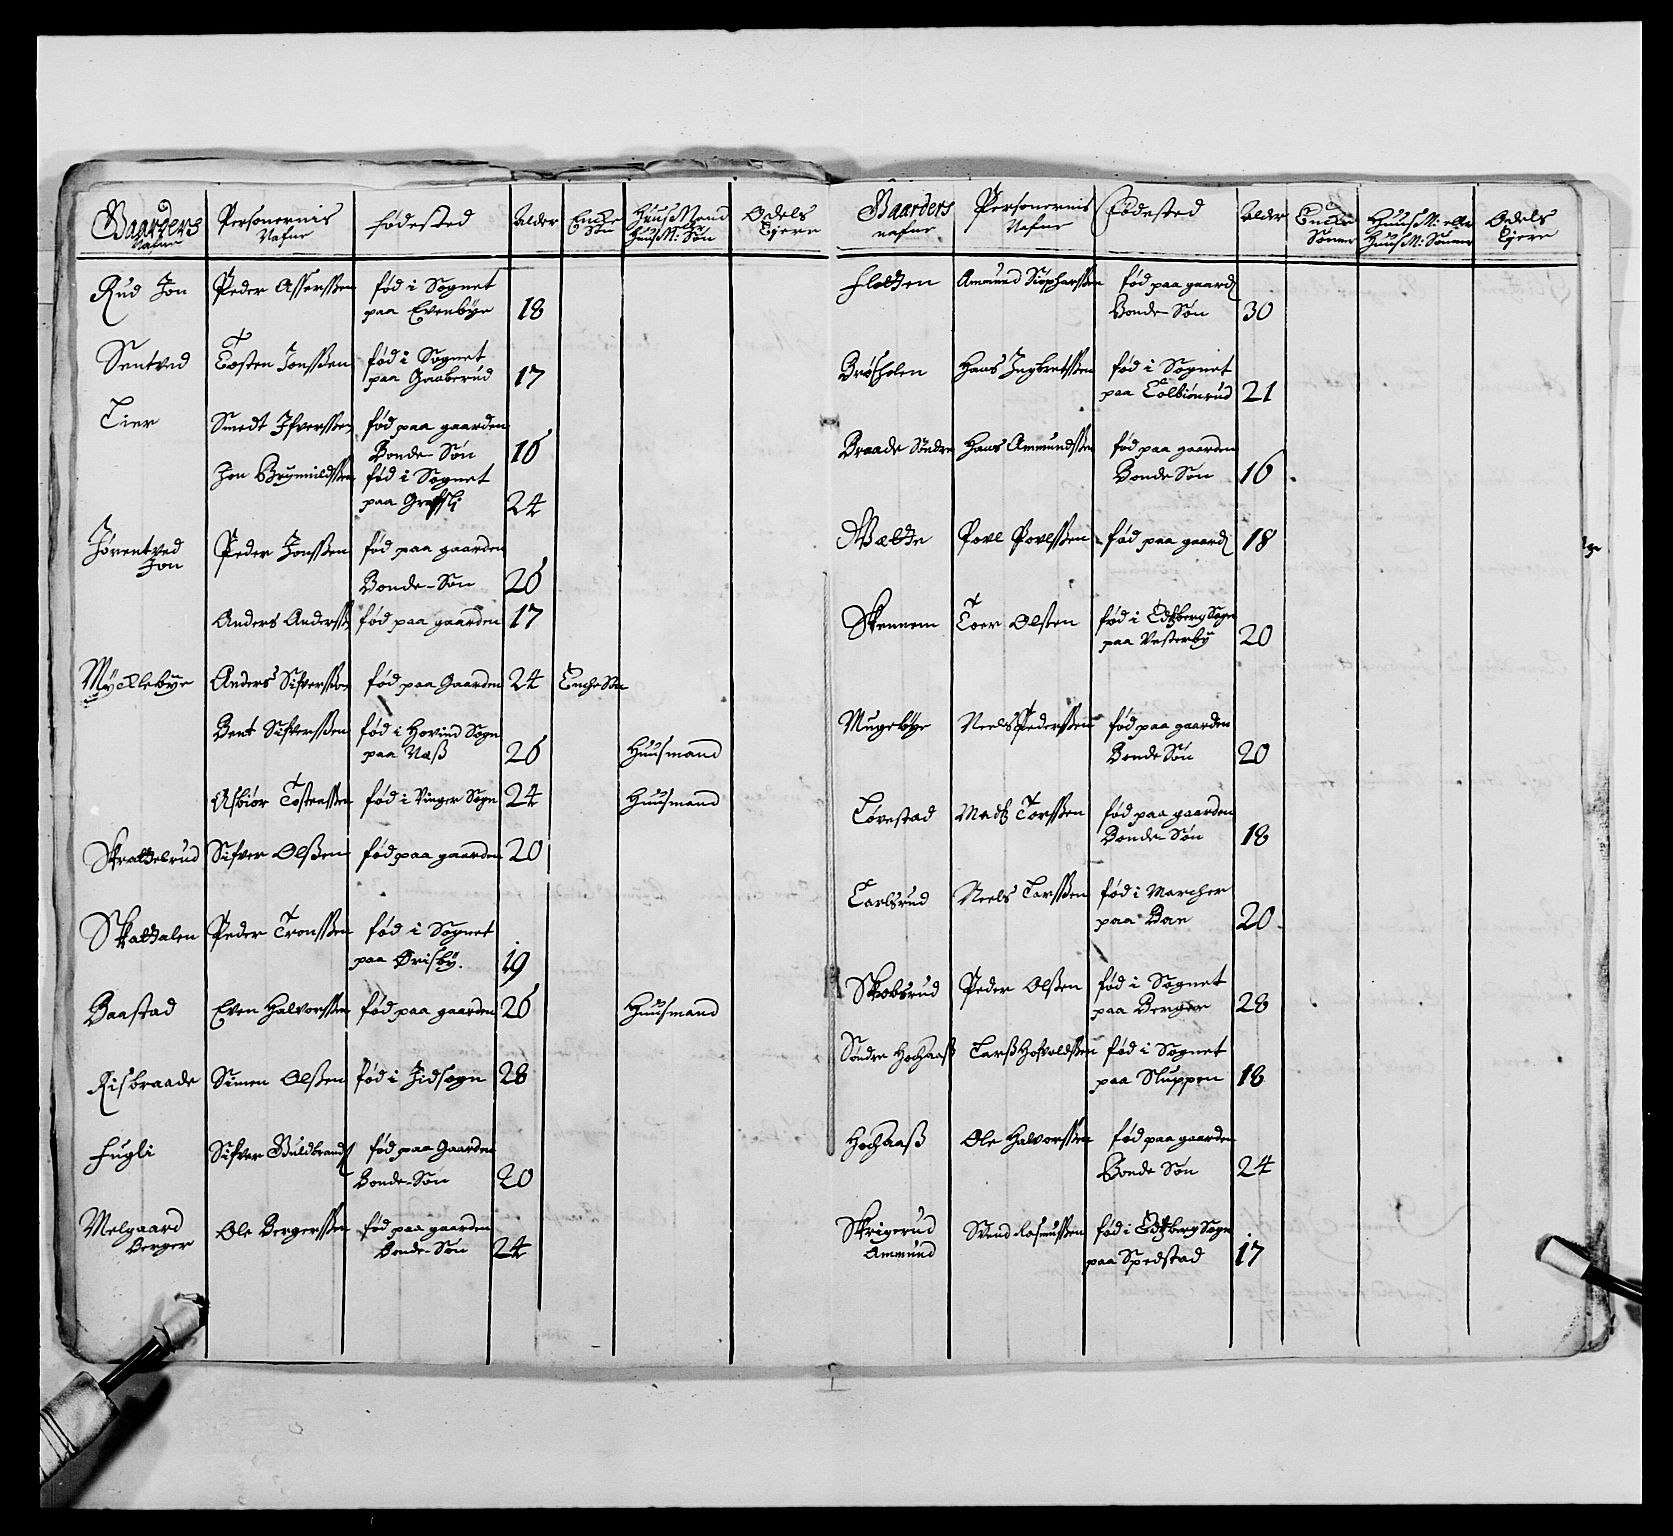 Gaarders Nafne | Personernis Nafne | Fødested | Alder | Encke Søn | HuusMend eller HuusM: Søn | Odels Ejere
Rud Jon | Peder Asserssen | fød i Sognet
paa Evenbye | 18
Sentved | Tosten Jonssen | fød i Sognet
paa Gaaberud | 17
Lier | Smedt Ifverssen | fød paa gaarden
Bonde-Søn | 16
Jon Brynnildssen | fød i Sognet
paa Grefsli | 24
Jørentved | Peder Jonssen | fød paa gaarden
Jon
Bonde-Søn | 26
Anders Anderss | fød paa gaarden | 17
Mycklebye | Anders Sifverssen | fød paa Gaarden | 24 | Encke Søn
Bent Sifverssen | fød i Hovind Sogn
paa Næss | 26 | Huusmand
Asbiør Tostenssen | fød i Vinger Sogn | 24 | Huusmand
Skrattelrud | Sifver Olssen | fød paa gaarden | 20
Skattalen | Peder Tronssen | fød i Sognet
paa Ørisby. | 19
Baastad | Even Halvorssen | fød paa gaarden | 26 | Huusmand
Risbraade | Simen Olssen | fød i Idsogn | 28
Fugli | Sifver Guldbrands | fød paa Gaarden
Bonde-Søn | 20
Melgaard | Ole Bergerssen | fød paa gaarden
Berger | Bonde-Søn | 24
Gaarders nafne | Personernis Nafne | Fødested | Alder | Encke Sønner | HuusM: eller HuusM: Sønner | Odels Ejere
Flotten | Ammund | fød paa gaard
Bonde-Søn | 30
Brøsholen | Hans Ingbretssen | fød i Sognet
paa Tolbiønrud | 21
Braade Søndre | Hans Ammundssen | fød paa gaarden
Bonde Søn | 16
Wætte | Povl Povlssen | fød paa gaard | 18
Skennem | Toer Olsten | fød i Edtzberg Sogn
paa Vesterby | 20
Mugebye | Neels Pederssen | fød paa gaarden
Bonde Søn | 20
Løvestad | Madtz Torssen | fød paa gaarden
Bonde-Søn | 18
Carlsrud | Neels Larssen | fød i Marcher
paa Bae | 20
Skobsrud | Peder Olssen | fød i Sognet
paa Berger | 28
Søndre Hochaass | Larss Hofvoldssen | fød i Sognet
paa Sluppen | 18
Hochaass | Ole Halvorssen | fød paa gaarden
Bonde Søn | 24
Skrigerud | Svend Rasmussen | fød i Edtzberg Sogn
Ammund | paa Spedstad | 17